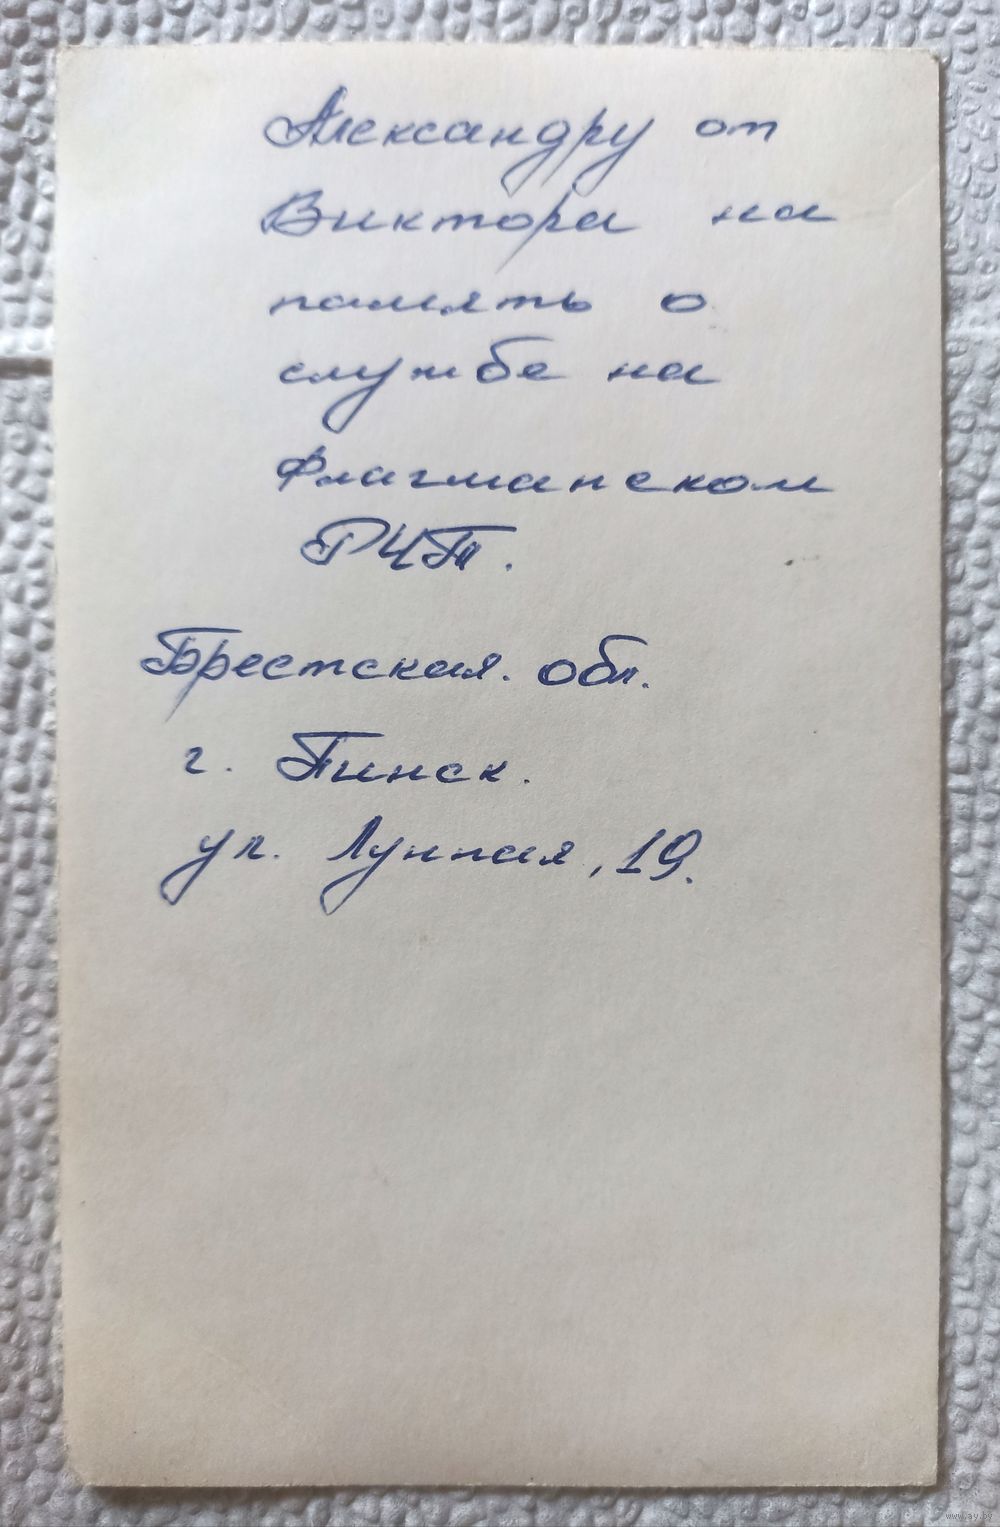 Александру от
Виктора на
память о
службе на
Флагманском
РЧТ.
Брестская. обл.
г. Пинск.
ул. Лунная, 19.
www.ay.by